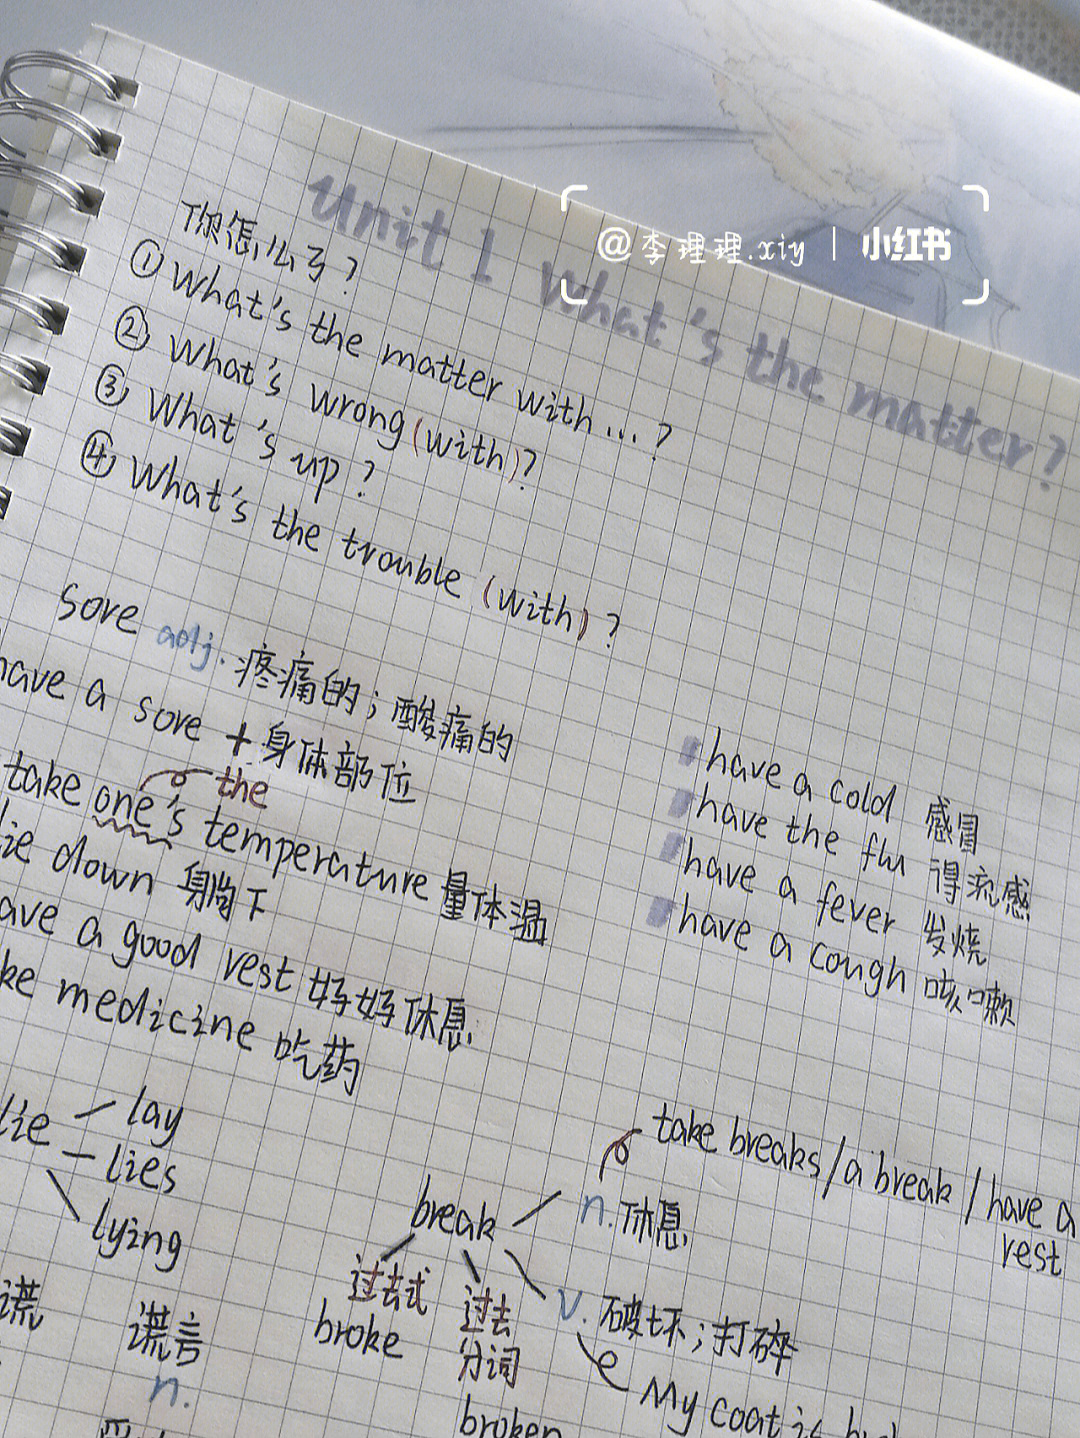 Unit 1 What's the matter?
@李理理.xiy | 小红书
你怎么了?
① What's the matter with...?
② What's wrong (with)?
③ What's up?
④ What's the trouble (with)?
sore adj. 疼痛的;酸痛的
have a sore + 身体部位
the
take one's temperature 量体温
lie down 躺下
have a good rest 好好休息
take medicine 吃药
have a cold 感冒
have the flu 得流感
have a fever 发烧
have a cough 咳嗽
lie
lay
lies
lying
谎
谎言
n.
take breaks / a break / have a
rest
break
n. 休息
过去式
broke
过去
分词
broken
v. 破坏;打碎
My coat is